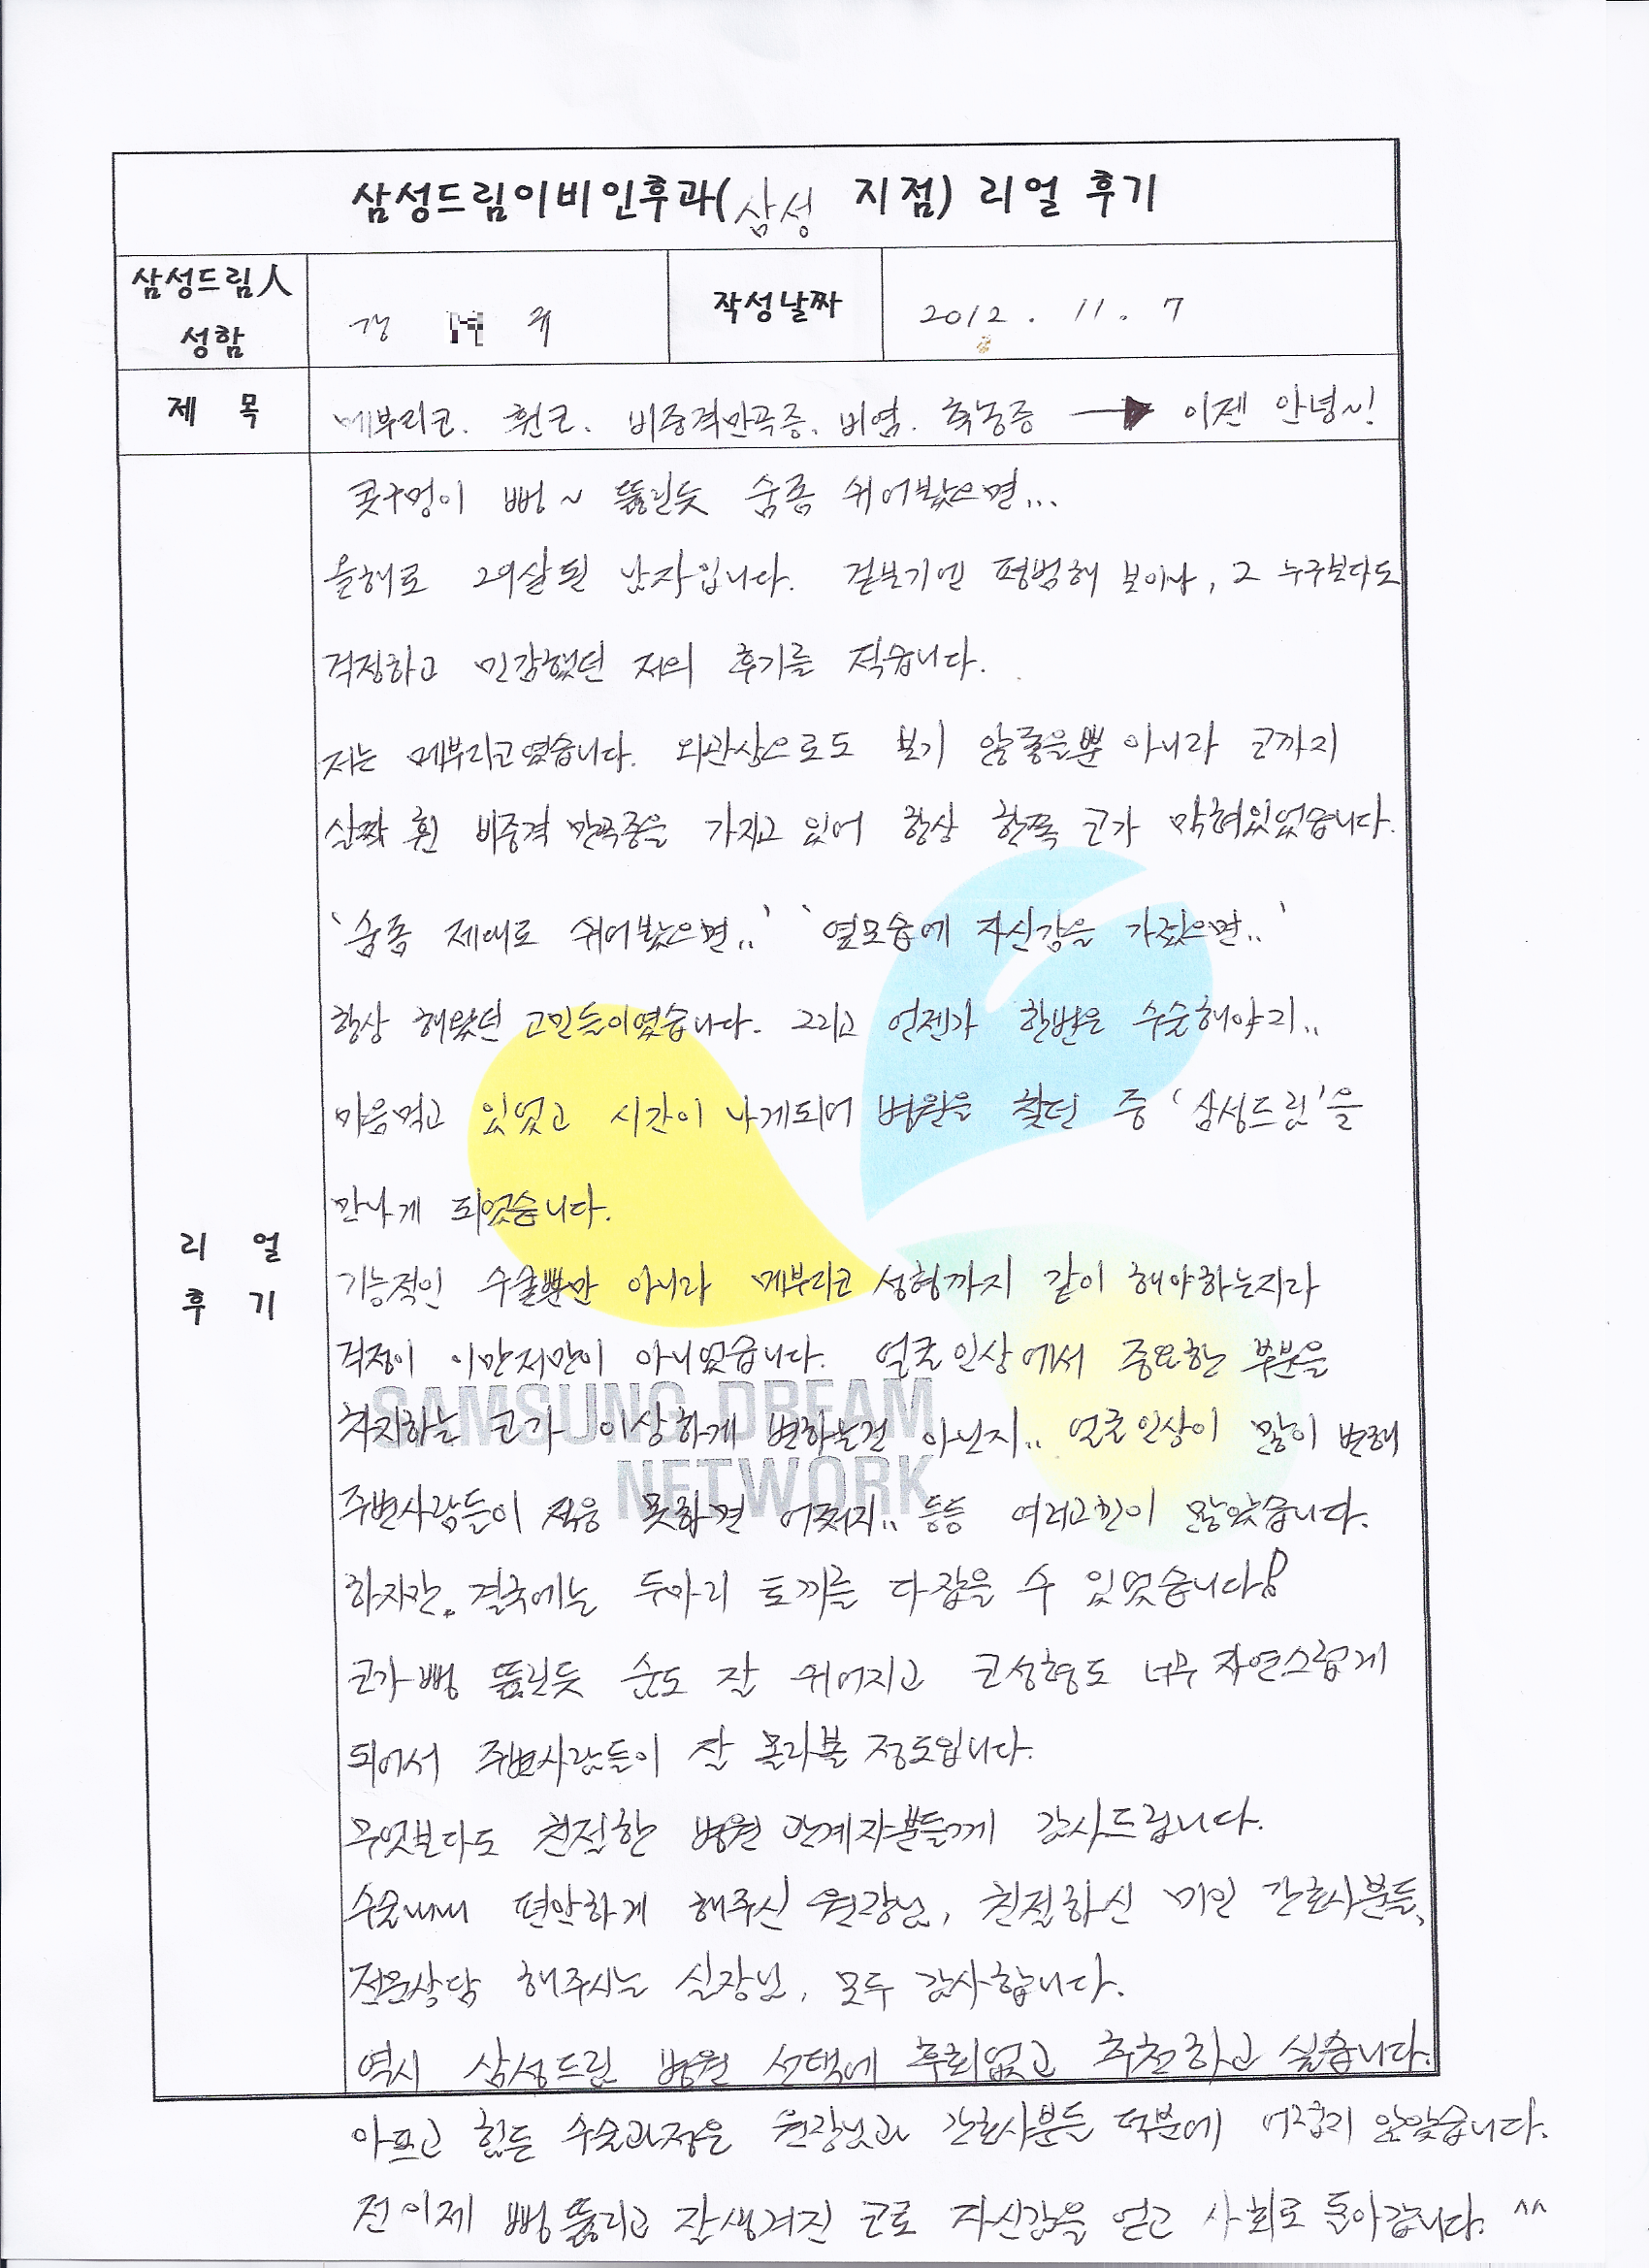 삼성드림이비인후과(삼성 지점) 리얼 후기
삼성드림人
성함
작성날짜
2012. 11. 7
제 목
메부리코. 휜코. 비중격만곡증. 비염. 축농증 → 이젠 안녕~!
콧구멍이 뻥~ 뚫린듯 숨좀 쉬어봤으면...
올해로 29살된 남자입니다. 겉보기엔 평범해 보이나, 그 누구보다도
걱정하고 민감했던 저의 후기를 적습니다.
저는 메부리코였습니다. 외관상으로도 보기 않좋을뿐 아니라 코까지
살짝 휜 비중격 만곡증을 가지고 있어 항상 한쪽 코가 막혀있었습니다.
'숨좀 제대로 쉬어봤으면..' '옆모습에 자신감을 가졌으면..'
항상 해왔던 고민들이였습니다. 그리고 언젠가 한번은 수술해야지..
마음먹고 있었고 시간이 나게되어 병원을 찾던 중 '삼성드림'을
만나게 되었습니다.
리 얼
후 기
기능적인 수술뿐만 아니라 메부리코 성형까지 같이 해야하는지라
걱정이 이만저만이 아니었습니다. 얼굴인상에서 중요한 부분을
차지하는 코가 이상하게 변하는건 아닌지.. 얼굴인상이 많이 변해
주변사람들이 적응 못하면 어쩌지.. 등등 여러고민이 많았습니다.
하지만. 결국에는 두마리 토끼를 다잡을 수 있었습니다!
코가 뻥 뚫린듯 숨도 잘 쉬어지고 코성형도 너무 자연스럽게
되어서 주변사람들이 잘 몰라볼 정도입니다.
무엇보다도 친절한 병원 관계자분들께 감사드립니다.
편안하게 해주신 원장님, 친절하신 미인 간호사분들,
전문상담 해주시는 실장님, 모두 감사합니다.
역시 삼성드림 병원 선택에 후회없고 추천하고 싶습니다.
아프고 힘든 수술과정은 원장님과 간호사분들 덕분에 어렵지 않았습니다.
전 이제 뻥 뚫리고 잘생겨진 코로 자신감을 얻고 사회로 돌아갑니다. ^^
SAMSUNG DREAM
NETWORK